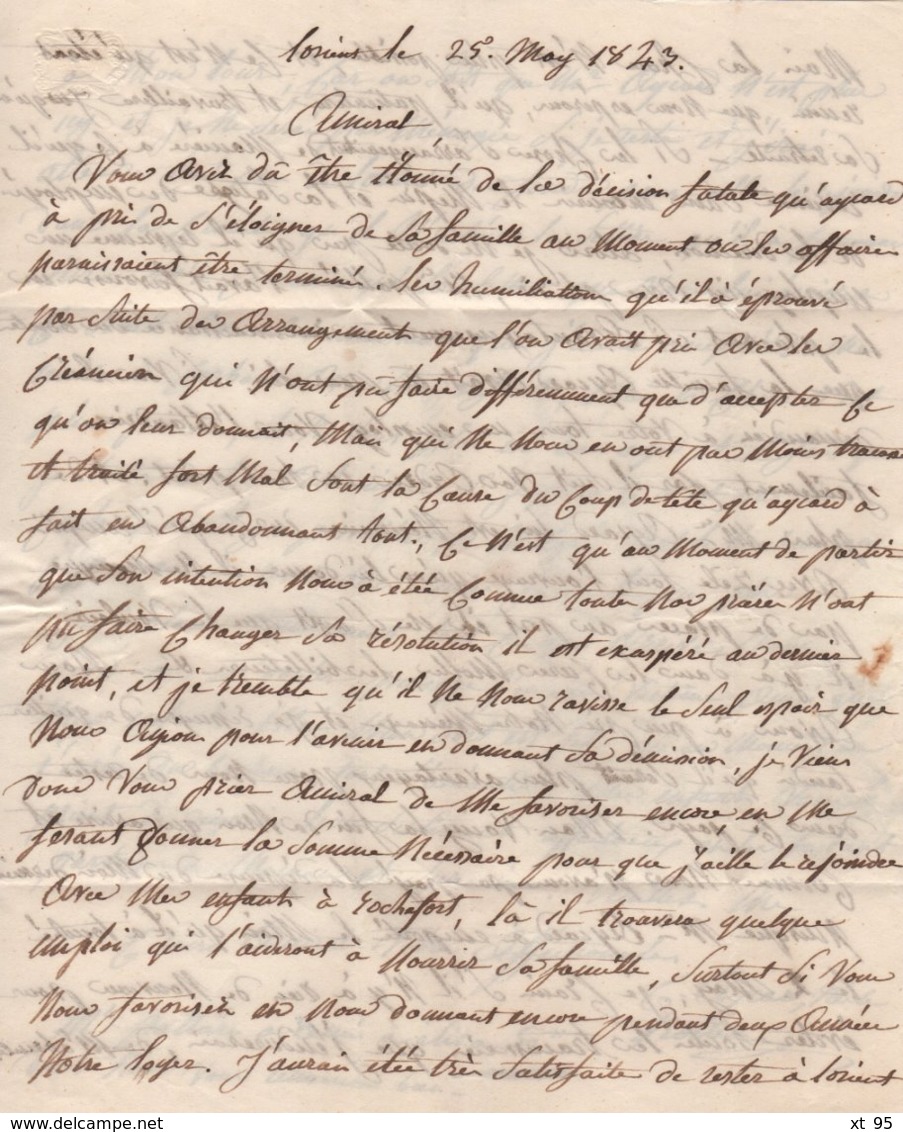 lorient le 25. May 1843.
Amiral
Vous avez dû être étonné de la décision fatale qu'aycard
à pris de s'éloigner de sa famille au moment ou les affaires
paraissaient être terminé. les humiliations qu'il à éprouvé
par suite des arrangement que l'on avait pris avec les
Créanciers qui n'ont pu faire différemment que d'accepter ce
qu'on leur donnait, mais qui ne nous en ont pas moins
et traité fort mal sont la cause du coup de tête qu'aycard à
fait en abandonnant tout., ce n'est qu'au moment de partir
que son intention nous à étée connue toutes nos prières n'ont
pu faire changer sa résolution il est exaspéré au dernier
point, et je tremble qu'il ne nous ravisse le seul espoir que
nous avions pour l'avenir en donnant sa démission, je viens
donc vous prier amiral de me favoriser encore en me
fesant donner la somme nécessaire pour que j'aille le rejoindre
avec mes enfants à rochefort, là il trouvera quelque
emploi qui l'aideront à nourrir sa famille, surtout si vous
nous favorisez en nous donnant encore pendant deux année
notre loyer. J'aurais étée très satisfaite de rester à lorient
xt 95